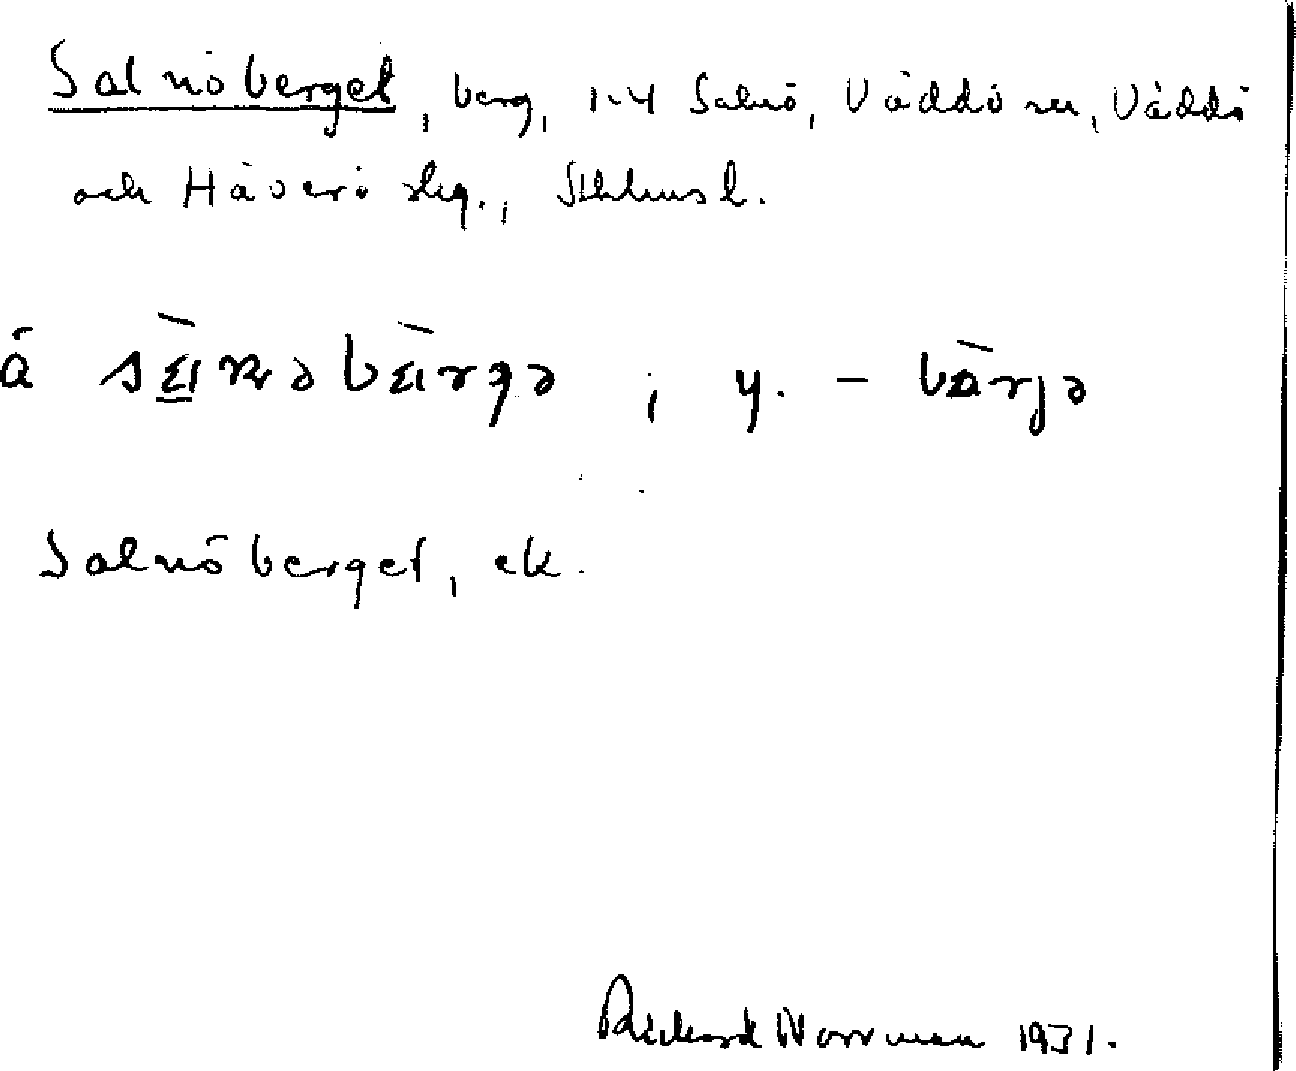 Salnöberget, berg, 1-4 Salnö, Väddö sn, Väddö
och Häverö skg., Sthlms l.
Salnöberget, ek.
Richard Norrman 1931.